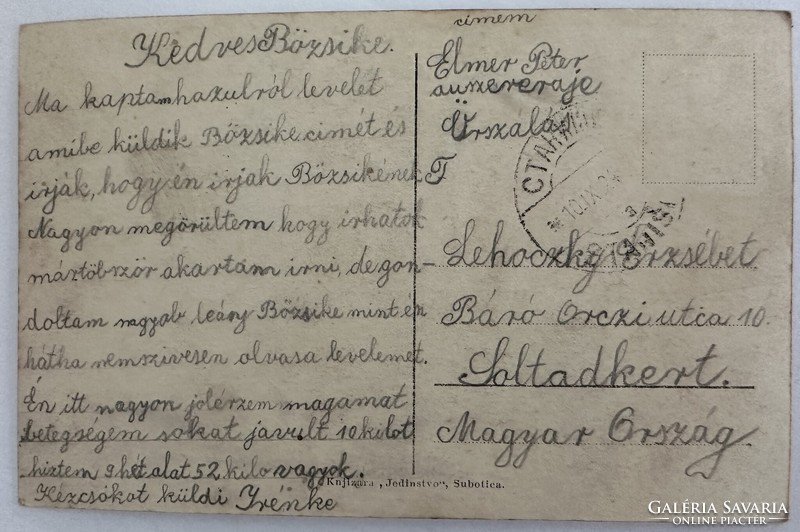 Kedves Bözsike.
Ma kaptam hazulról levelet
amibe küldik Bözsike cimét és
irják, hogy én irjak Bözsikének
Nagyon megörültem hogy irhatok
mártöbször akartam irni, de gon-
doltam nagyab leány Bözsike mint én
hátha nemszivesen olvasa levelemet.
Én itt nagyon jólérzem magamat
betegségem sokat javult 10 kilot
hiztem 9 hét alat 52 kilo vagyok.
Kézcsókot küldi Irénke
cimem
Elmer Péter
Lehoczky Erzsébet
Báró Orczi utca 10.
Soltadkert.
Magyar Ország.
Knjižara „Jedinstvo", Subotica.
GALÉRIA SAVARIA
ONLINE PIACTÉR